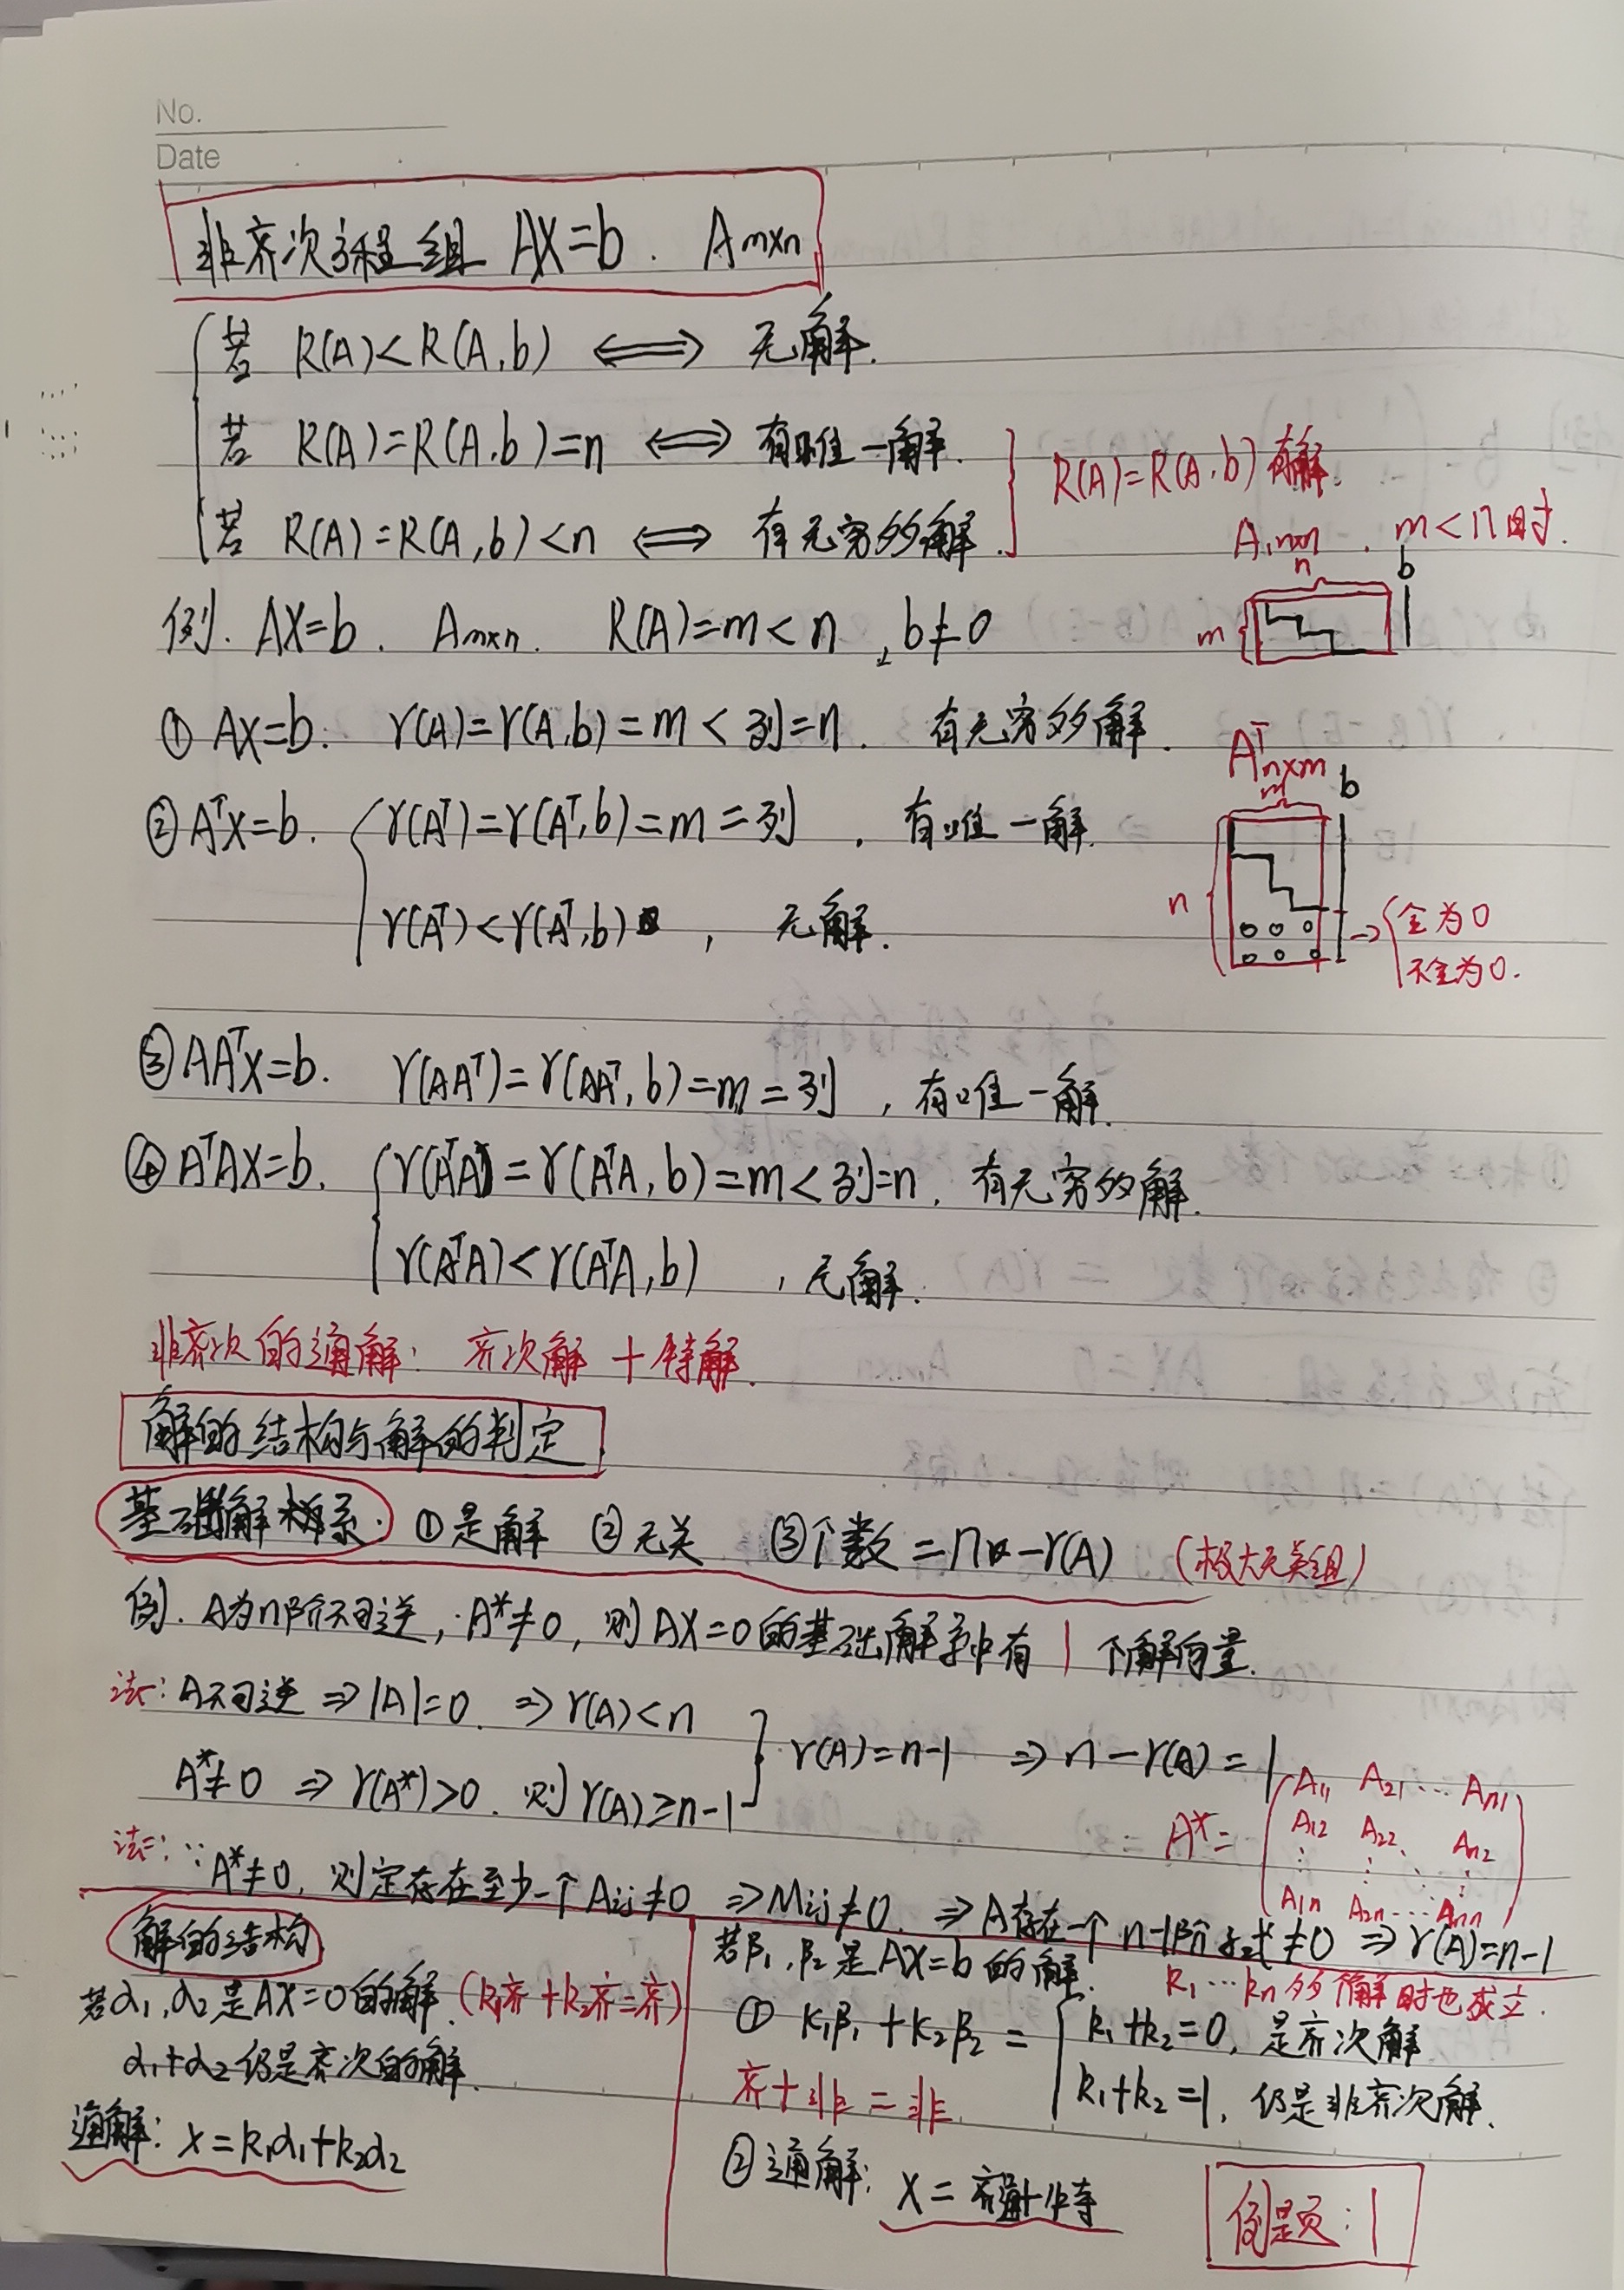 No.
Date
非齐次方程组 AX=b. Am×n
若 R(A)<R(A,b) ⟺ 无解.
若 R(A)=R(A,b)=n ⟺ 有唯一解.
若 R(A)=R(A,b)<n ⟺ 有无穷多解.
R(A)=R(A,b) 有解.
Am×n , m<n时.
n
b
m
例. AX=b. Am×n. R(A)=m<n, b≠0
① AX=b. r(A)=r(A,b)=m<列=n. 有无穷多解.
② AᵀX=b. r(Aᵀ)=r(Aᵀ,b)=m=列, 有唯一解.
r(Aᵀ)<r(Aᵀ,b), 无解.
Aᵀn×m
m
b
n
0 0 0
0 0 0
→ 全为0
不全为0.
③ AAᵀX=b. r(AAᵀ)=r(AAᵀ,b)=m=列, 有唯一解.
④ AᵀAX=b. r(AᵀA)=r(AᵀA,b)=m<列=n, 有无穷多解.
r(AᵀA)<r(AᵀA,b), 无解.
非齐次的通解: 齐次解+特解.
解的结构与解的判定
基础解析系. ①是解 ②无关 ③个数=n-r(A) (极大无关组)
例. A为n阶不可逆, A*≠0, 则AX=0的基础解系中有 1 个解向量.
法一: A不可逆 ⇒ |A|=0. ⇒ r(A)<n
A*≠0 ⇒ r(A*)>0. 则r(A)≥n-1
r(A)=n-1 ⇒ n-r(A)=1
A*=
A11 A21 ... An1
A12 A22 ... An2
⋮ ⋮ ⋮
A1n A2n ... Ann
法二: ∵A*≠0, 则定存在至少一个Aij≠0 ⇒ Mij≠0. ⇒ A存在一个n-1阶子式≠0 ⇒ r(A)=n-1
解的结构
若α1,α2是AX=0的解. (k1齐+k2齐=齐)
α1+α2仍是齐次的解.
通解: x=k1α1+k2α2
若β1,β2是AX=b的解.
k1...kn多个解时也成立.
① k1β1+k2β2= k1+k2=0, 是齐次解
k1+k2=1, 仍是非齐次解.
齐+非=非.
②通解: X=齐通+非特
例题: 1